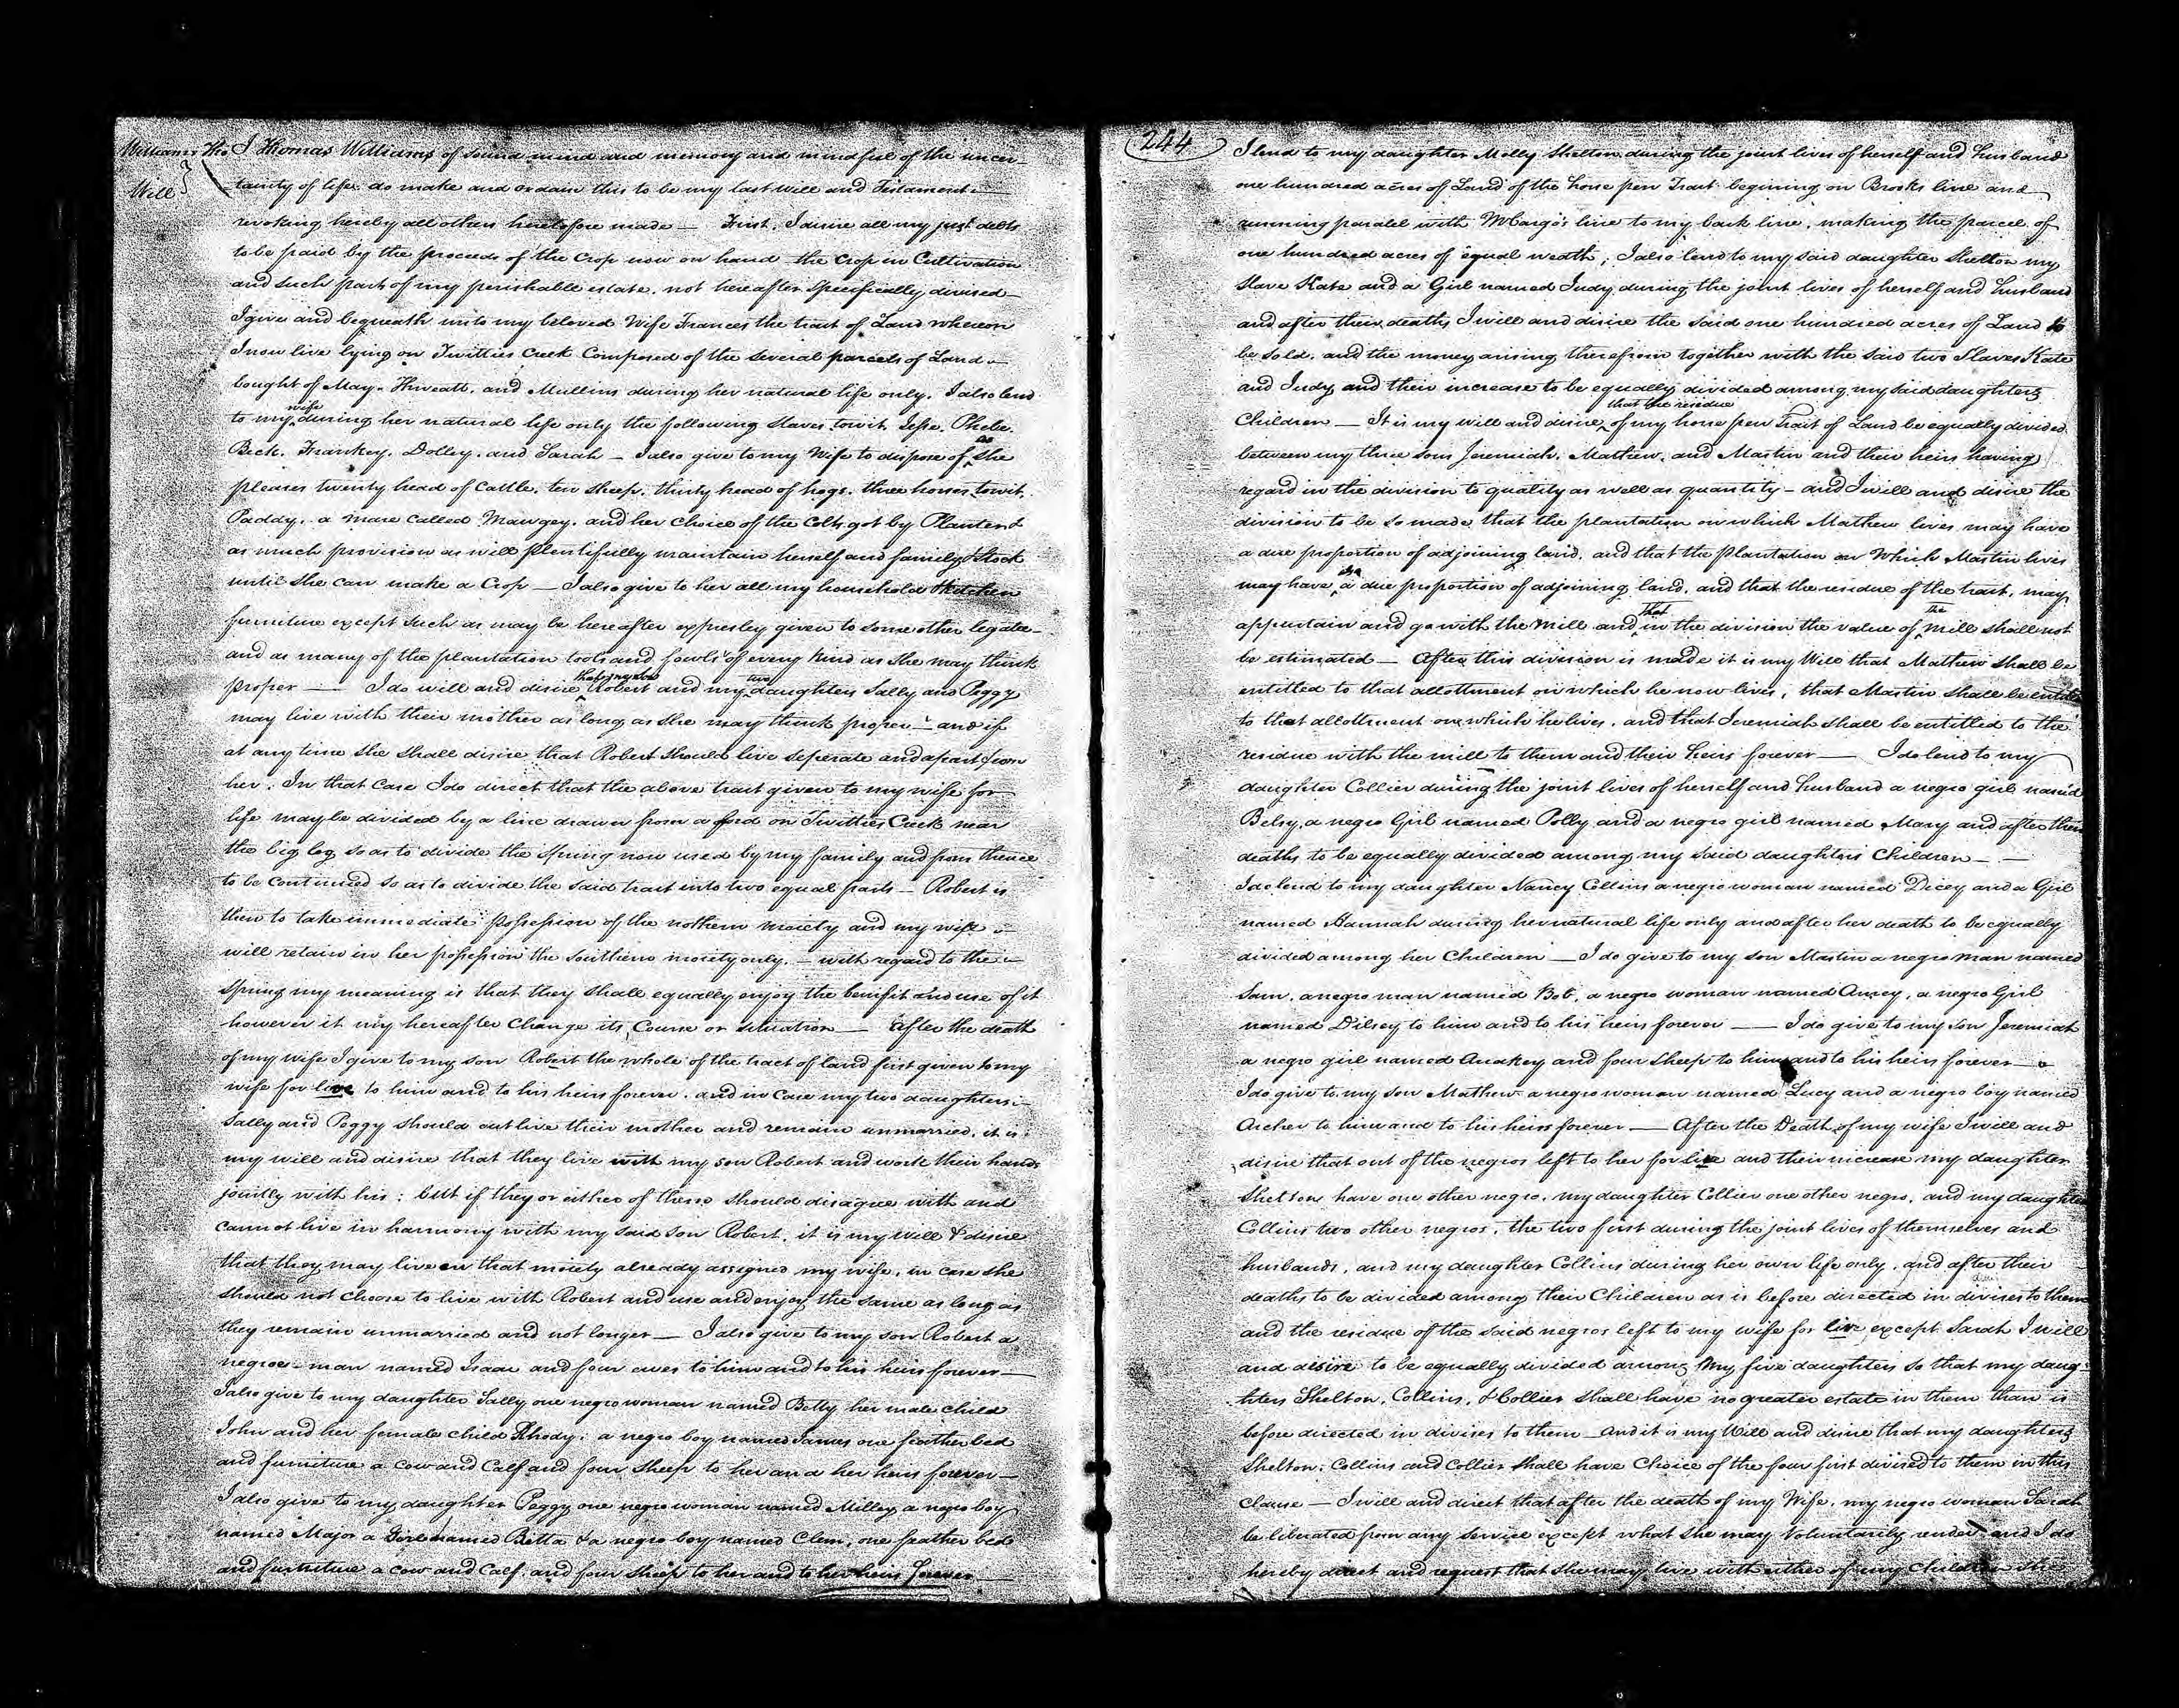 Williams Tho
Will
I Thomas Williams of sound mind and memory and mindful of the uncer-
tainty of life do make and ordain this to be my last will and Testament
revoking hereby all others heretofore made — First, I desire all my just debts
to be paid by the proceeds of the Crop now on hand the Crop in Cultivation
and such part of my perishable estate, not hereafter specifically devised —
I give and bequeath unto my beloved Wife Frances the tract of Land whereon
I now live lying on Twitties Creek Composed of the several parcels of Land
bought of May. Thweatt. and Mullins during her natural life only. I also lend
to my wife during her natural life only the following Slaves towit Jesse, Phebe.
Beck. Frankey. Dolley. and Sarah — I also give to my Wife to dispose of as she
pleases twenty head of Cattle, ten sheep, thirty head of hogs, three horses towit.
Paddy, a mare called Mawgey, and her choice of the Colts got by Planter &
as much provision as will plentifully maintain herself and family & Stock
until she can make a Crop — I also give to her all my household & kitchen
furniture except such as may be hereafter expresley given to some other legatee
and as many of the plantation tools and fowls of every kind as she may think
proper — I do will and disire that my son Robert and my two daughters Sally and Peggy
may live with their mother as long as she may think proper — and if
at any time she shall disire that Robert should live seperate and apart from
her. In that case I do direct that the above tract given to my wife for
life may be divided by a line drawn from a ford on Twitties Creek near
the big log so as to divide the spring now used by my family and from thence
to be continued so as to divide the said tract into two equal parts — Robert is
then to take immediate possession of the nothern moiety and my wife
will retain in her possession the southern moiety only. — with regard to the
spring my meaning is that they shall equally enjoy the benifit and use of it
however it my hereafter Change its Course or situation — After the death
of my wife I give to my son Robert the whole of the tract of land first given to my
wife for live to him and to his heirs forever, and in case my two daughters
Sally and Peggy should outlive their mother and remain unmarried, it is
my will and disire that they live with my son Robert and work their hands
jointly with his; but if they or either of them should disagree with and
cannot live in harmony with my said son Robert, it is my will & disire
that they may live on that moiety already assigned my wife, in case she
should not choose to live with Robert and use and enjoy the same as long as
they remain unmarried and not longer — I also give to my son Robert a
negroe man named Isaac and four ewes to him and to his heirs forever —
I also give to my daughter Sally one negro woman named Betty her male child
John and her female child Rhody, a negro boy named James one feather bed
and furniture a cow and Calf and four sheep to her and her heirs forever —
I also give to my daughter Peggy one negro woman named Milley a negro boy
named Major a Girl named Betta & a negro boy named Clem, one feather bed
and furniture a cow and Calf, and four sheep to her and to her heirs forever
244
I lend to my daughter Molly Shelton during the joint lives of herself and husband
one hundred acres of Land of the horse pen Tract begining on Brooks line and
running paralel with McCargo's line to my back line, making the parcel of
one hundred acres of equal weath, I also lend to my said daughter Shelton my
Slave Kate and a Girl named Judy during the joint lives of herself and husband
and after their deaths I will and disire the said one hundred acres of Land to
be sold, and the money arising therefrom together with the said two Slaves Kate
and Judy and their increase to be equally divided among my said daughters
Children — It is my will and disire that the residue of my horse pen Tract of Land be equally divided
between my three sons Jeremiah, Mathew, and Martin and their heirs having
regard in the division to quality as well as quantity — and I will and disire the
division to be so made that the plantation on which Mathew lives may have
a due proportion of adjoining land, and that the plantation on Which Martin lives
may have a due proportion of adjoining land, and that the residue of the tract, may
appurtain and go with the Mill and that in the division the value of the mill shall not
be estimated — After this division is made it is my Will that Mathew shall be
entitled to that allottment on which he now lives, that Martin shall be entitled
to that allottment on which he lives, and that Jeremiah shall be entitled to the
residue with the mill to them and their heirs forever — I do lend to my
daughter Collier during the joint lives of herself and husband a negro girl named
Betsy, a negro Girl named Polly and a negro girl named Mary and after their
deaths to be equally divided among my said daughters Children —
I do lend to my daughter Nancy Collins a negro woman named Dicey and a Girl
named Hannah during her natural life only and after her death to be equally
divided among her Children — I do give to my son Martin a negro man named
Sam, a negro man named Bob, a negro woman named Ancey, a negro Girl
named Dilsey to him and to his heirs forever — I do give to my son Jeremiah
a negro girl named Anakey and four sheep to him and to his heirs forever —
I do give to my son Mathew a negro woman named Lucy and a negro boy named
Archer to him and to his heirs forever — After the Death of my wife I will and
disire that out of the negros left to her for live and their increase my daughter
Shelton have one other negro, my daughter Collier one other negro, and my daughter
Collins two other negros, the two first during the joint lives of themselves and
husbands, and my daughter Collins during her own life only, and after their
deaths to be divided among their Children as is before directed in divises to them
and the residue of the said negros left to my wife for live except Sarah I will
and desire to be equally divided among My five daughters so that my daug-
hters Shelton, Collins, & Collier shall have no greater estate in them than is
before directed in divises to them — And it is my Will and disire that my daughters
Shelton, Collins and Collier shall have Choice of the four first divised to them in this
Clause — I will and direct that after the death of my Wife, my negro woman Sarah
be liberated from any service except what she may Voluntarily render and I do
hereby direct and request that she may live with either of my Children she